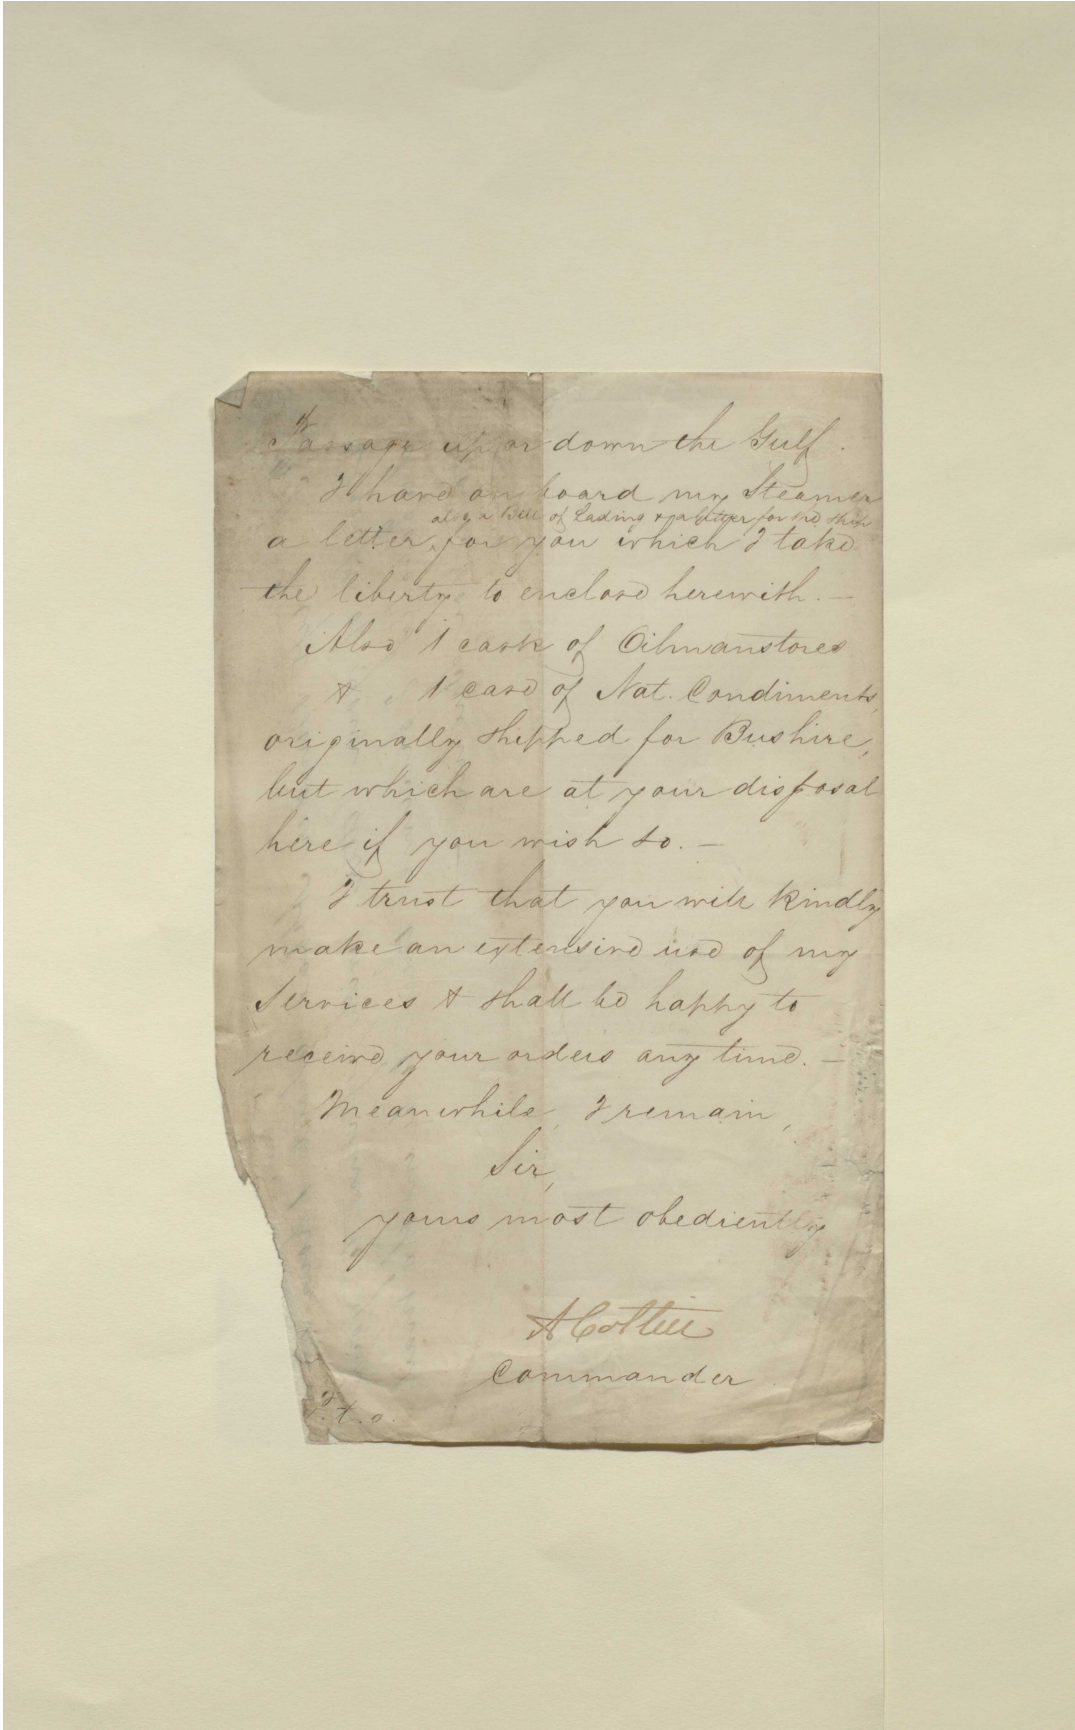 Passage up or down the Gulf.
I have on board my Steamer
also a Bill of Lading & a letter for the ship
a letter, for you which I take
the liberty to enclose herewith. —
Also 1 cask of Oilmanstores
& 1 case of Nat. Condiments,
originally shipped for Bushire,
but which are at your disposal
here if you wish so. —
I trust that you will kindly
make an extensive use of my
Services & shall be happy to
receive your orders any time. —
Meanwhile, I remain,
Sir,
yours most obediently
Commander
P.t.o.